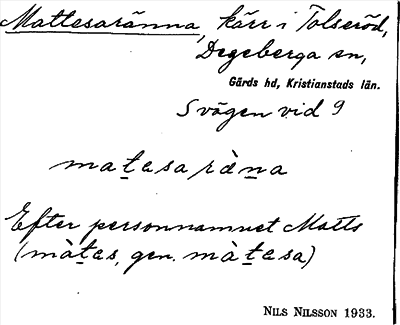 Mattesaränna, kärr i Tolseröd,
Degeberga sn,
Gärds hd, Kristianstads län.
S vägen vid 9
mat̲asa ràn̲a
Efter personnamnet Matts
(màt̲as, gen. màt̲asa)
NILS NILSSON 1933.